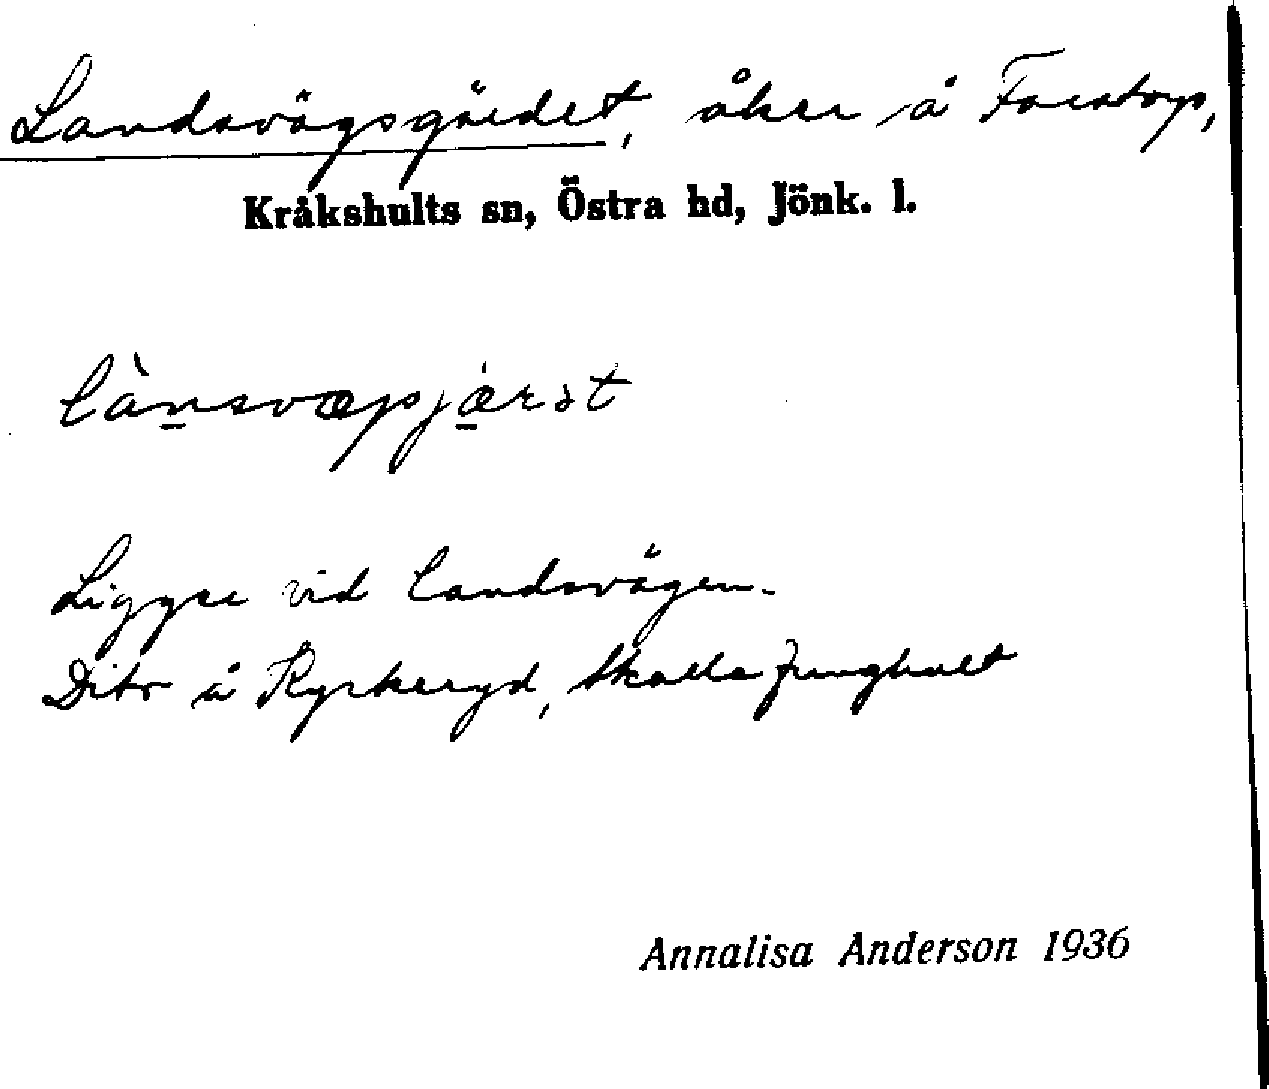 Landsvägsgärdet, åker å Farstorp,
Kråkshults sn, Östra hd, Jönk. l.
lànsvæpsjærət
Ligger vid landsvägen.
Dito å Kyrkeryd, Skalla
Annalisa Anderson 1936